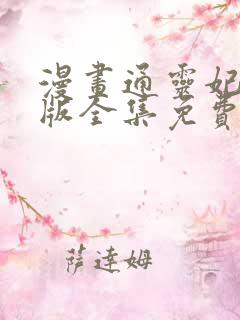 漫畫通靈妃
版全集免費
薩達姆